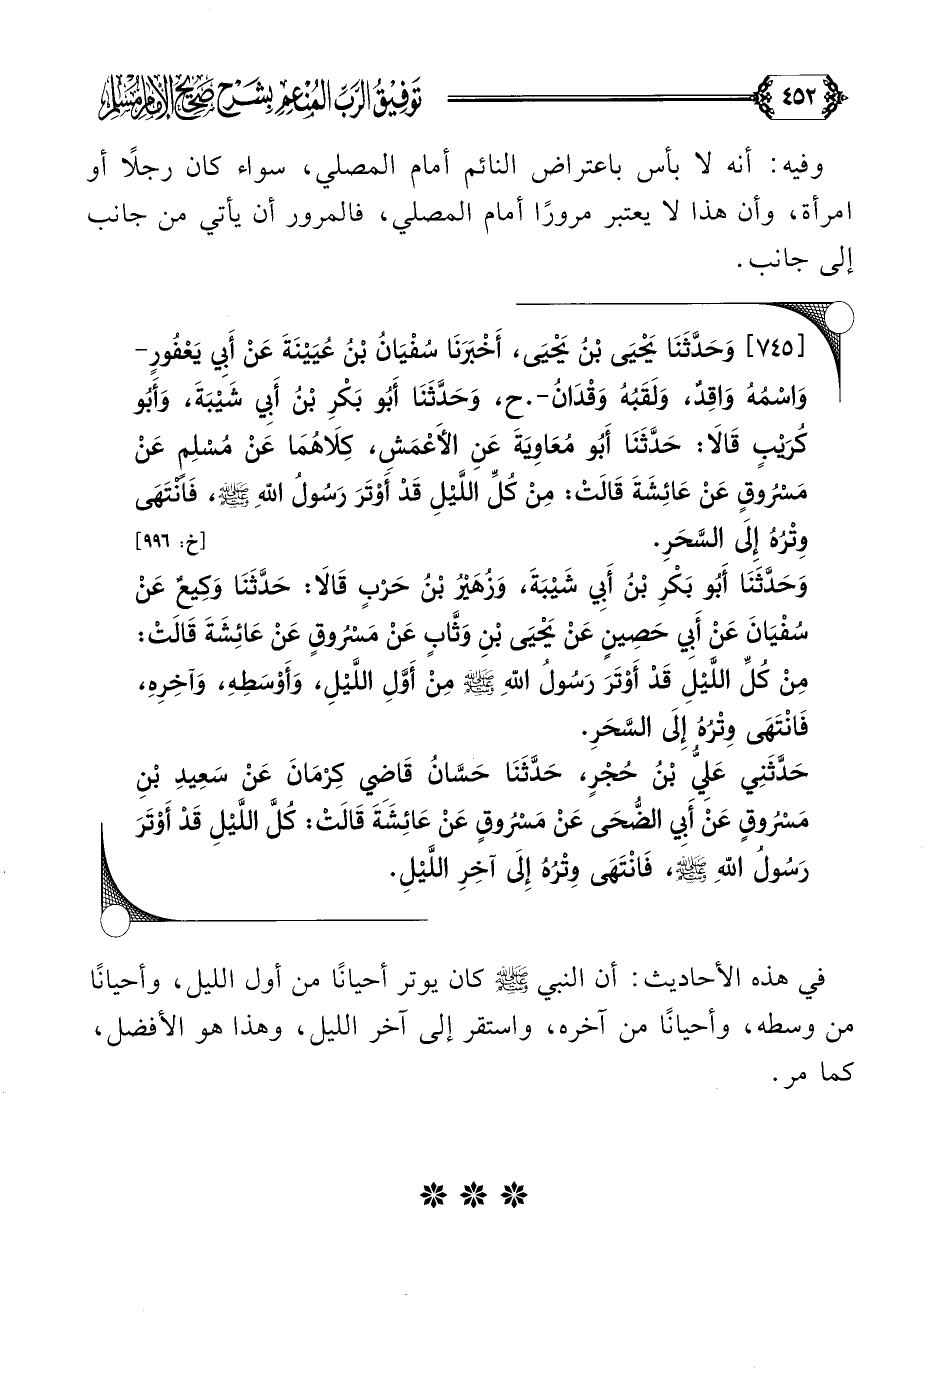 ٤٥٢ توفيق الرب المنعم بشرح صحيح الإمام مسلم
وفيه: أنه لا بأس باعتراض النائم أمام المصلي، سواء كان رجلًا أو
امرأة، وأن هذا لا يعتبر مرورًا أمام المصلي، فالمرور أن يأتي من جانب
إلى جانب.
[٧٤٥] وَحَدَّثَنَا يَحْيَى بْنُ يَحْيَى، أَخْبَرَنَا سُفْيَانُ بْنُ عُيَيْنَةَ عَنْ أَبِي يَعْفُورٍ-
وَاسْمُهُ وَاقِدٌ، وَلَقَبُهُ وَقْدَانُ-.ح، وَحَدَّثَنَا أَبُو بَكْرِ بْنُ أَبِي شَيْبَةَ، وَأَبُو
كُرَيْبٍ قَالَا: حَدَّثَنَا أَبُو مُعَاوِيَةَ عَنِ الْأَعْمَشِ، كِلَاهُمَا عَنْ مُسْلِمٍ عَنْ
مَسْرُوقٍ عَنْ عَائِشَةَ قَالَتْ: مِنْ كُلِّ اللَّيْلِ قَدْ أَوْتَرَ رَسُولُ اللهِ ﷺ، فَانْتَهَى
وِتْرُهُ إِلَى السَّحَرِ. [خ: ٩٩٦]
وَحَدَّثَنَا أَبُو بَكْرِ بْنُ أَبِي شَيْبَةَ، وَزُهَيْرُ بْنُ حَرْبٍ قَالَا: حَدَّثَنَا وَكِيعٌ عَنْ
سُفْيَانَ عَنْ أَبِي حَصِينٍ عَنْ يَحْيَى بْنِ وَثَّابٍ عَنْ مَسْرُوقٍ عَنْ عَائِشَةَ قَالَتْ:
مِنْ كُلِّ اللَّيْلِ قَدْ أَوْتَرَ رَسُولُ اللهِ ﷺ مِنْ أَوَّلِ اللَّيْلِ، وَأَوْسَطِهِ، وَآخِرِهِ،
فَانْتَهَى وِتْرُهُ إِلَى السَّحَرِ.
حَدَّثَنِي عَلِيُّ بْنُ حُجْرٍ، حَدَّثَنَا حَسَّانُ قَاضِي كِرْمَانَ عَنْ سَعِيدِ بْنِ
مَسْرُوقٍ عَنْ أَبِي الضُّحَى عَنْ مَسْرُوقٍ عَنْ عَائِشَةَ قَالَتْ: كُلَّ اللَّيْلِ قَدْ أَوْتَرَ
رَسُولُ اللهِ ﷺ، فَانْتَهَى وِتْرُهُ إِلَى آخِرِ اللَّيْلِ.
في هذه الأحاديث: أن النبي ﷺ كان يوتر أحيانًا من أول الليل، وأحيانًا
من وسطه، وأحيانًا من آخره، واستقر إلى آخر الليل، وهذا هو الأفضل،
كما مر.